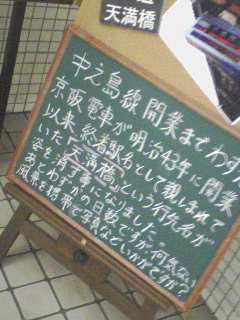 天満橋
中之島線開業までわず
京阪電車が明治43年に開業
以来、終着駅名として親しまれて
いた「天満橋」という行先名が
姿を消す事になりました。
あとわずかの日数ですが、何気ない
風景を携帯で写真などいかがですか?